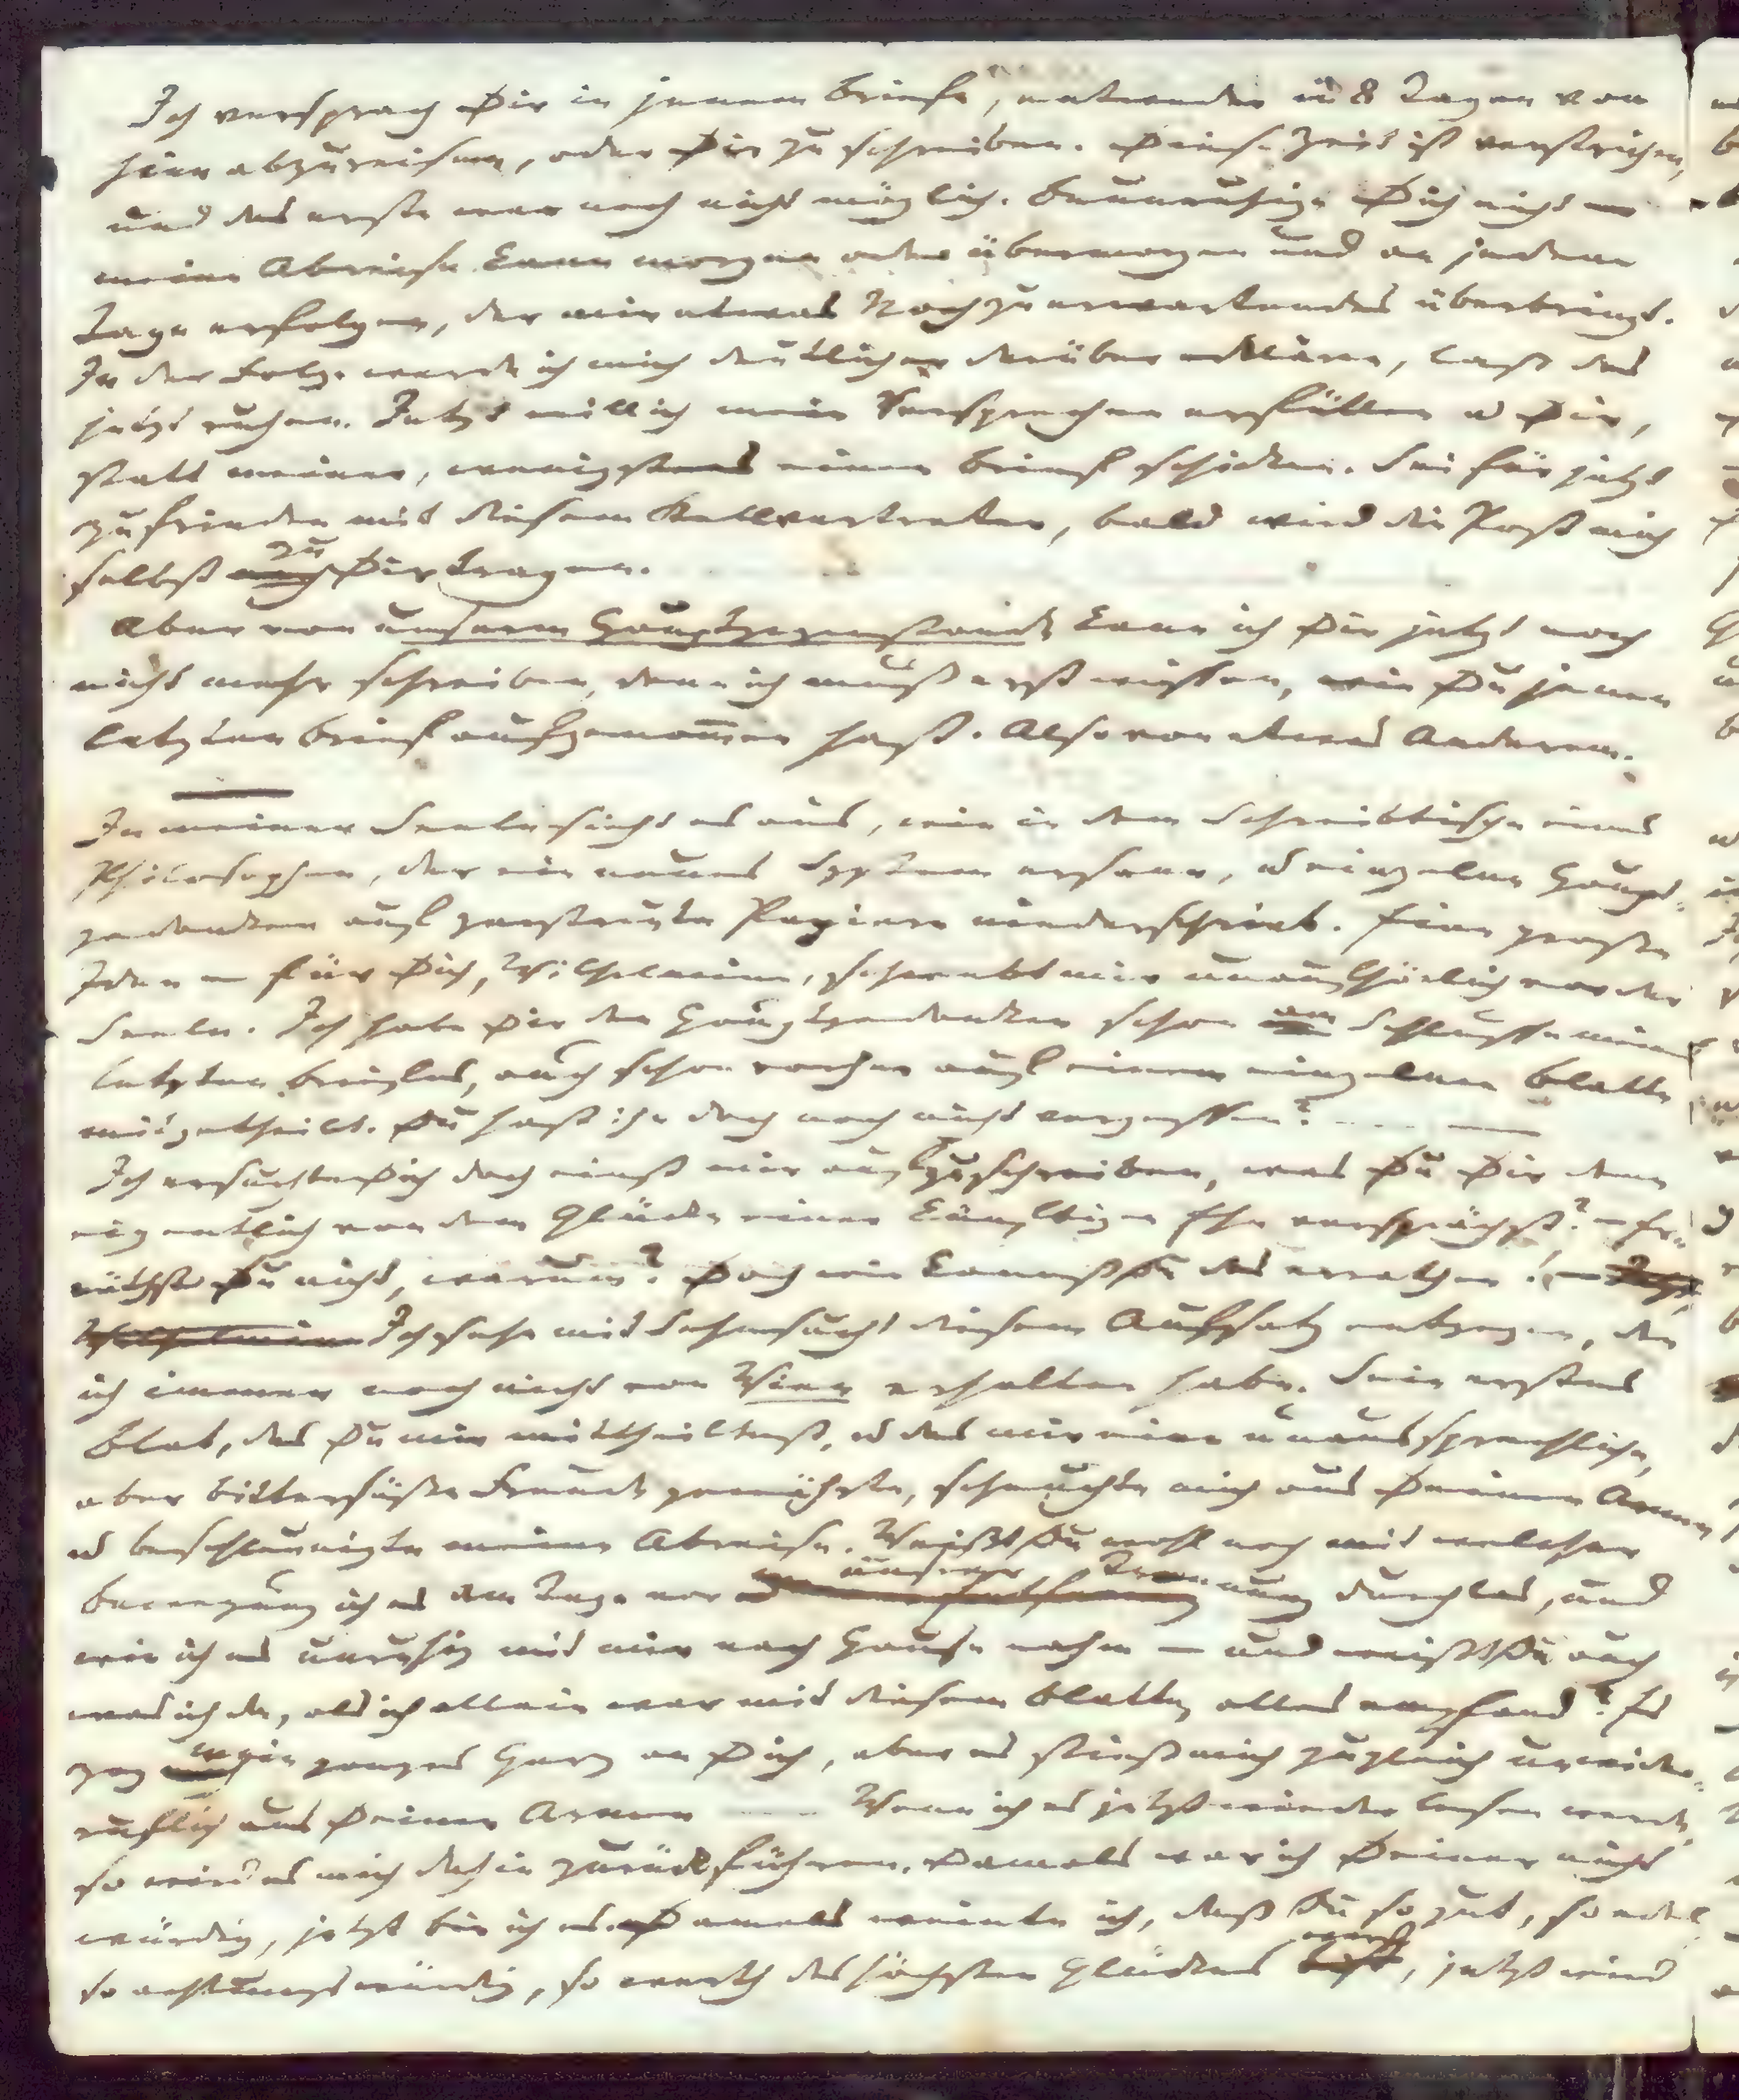 Ich versprach Dir in jenem Briefe, entweder in 8 Tagen von
hier abzureisen, oder Dir zu schreiben. Diese Zeit ist verstrichen,
und das erste war noch nicht möglich. Beunruhige Dich nicht —
meine Abreise kann morgen oder übermorgen und an jedem
Tage erfolgen, der mir etwas Nochzuerwartendes überbringt.
In der Folge werde ich mich deutlicher darüber erklären, laß das
jetzt ruhen. Jetzt will ich mein Versprechen erfüllen u Dir,
statt meiner, wenigstens einen Brief schicken. Sei für jetzt
zufrieden mit diesem Stellvertreter, bald wird die Post mich
selbst zu Dir tragen.
Aber von unserm Hauptgegenstande kann ich Dir jetzt noch
nicht mehr schreiben, denn ich muß erst wissen, wie Du jenen
letzten Brief aufgenom̄en hast. Also von etwas Anderem.
In meiner Seele sieht es aus, wie in dem Schreibtische eines
Philosophen, der ein neues System ersann, u einzelne Haupt-
gedanken auf zerstreute Papiere niederschrieb. Eine große
Idee — für Dich, Wilhelmine, schwebt mir unaufhörlich vor der
Seele. Ich habe Dir den Hauptgedanken schon am Schlusse meines
letzten Briefes, auch schon vorher auf einem einzelnen Blatte
mitgetheilt. Du hast ihn doch noch nicht vergessen? — —
Ich ersuchte Dich doch einst mir aufzuschreiben, was Du Dir denn
eigentlich von dem Glücke einer künftigen Ehe versprächst? — Er-
räthst Du nicht, warum? Doch wie kannst Du das errathen! —
Wilhelmine Ich sehe mit Sehnsucht diesem Aufsatz entgegen, den
ich immer noch nicht von Wien erhalten habe. Sein erstes
Blat, das Du mir mittheiltest, u das mir eine unaussprechliche,
aber bittersüße Freude gewährte, scheuchte mich aus Deinen Armen
u beschleunigte meine Abreise. Weißt Du wohl noch mit welcher
Bewegung ich es am Tage vor unserer Trennung durchlas, und
wie ich es unruhig mit mir nach Hause nahm — und weißt Du auch
was ich da, als ich allein war mit diesem Blatte, alles empfand? Es
zog mein ganzes Herz an Dich, aber es stieß mich zugleich unwider-
ruflich aus Deinen Armen — Wenn ich es jetzt wieder lesen werde,
so wird es mich dahin zurückführen. Damals war ich Deiner nicht
würdig, jetzt bin ich es. Damals weinte ich, daß Du so gut, so edel,
so achtungswürdig, so werth des höchsten Glückes warst, jetzt wird